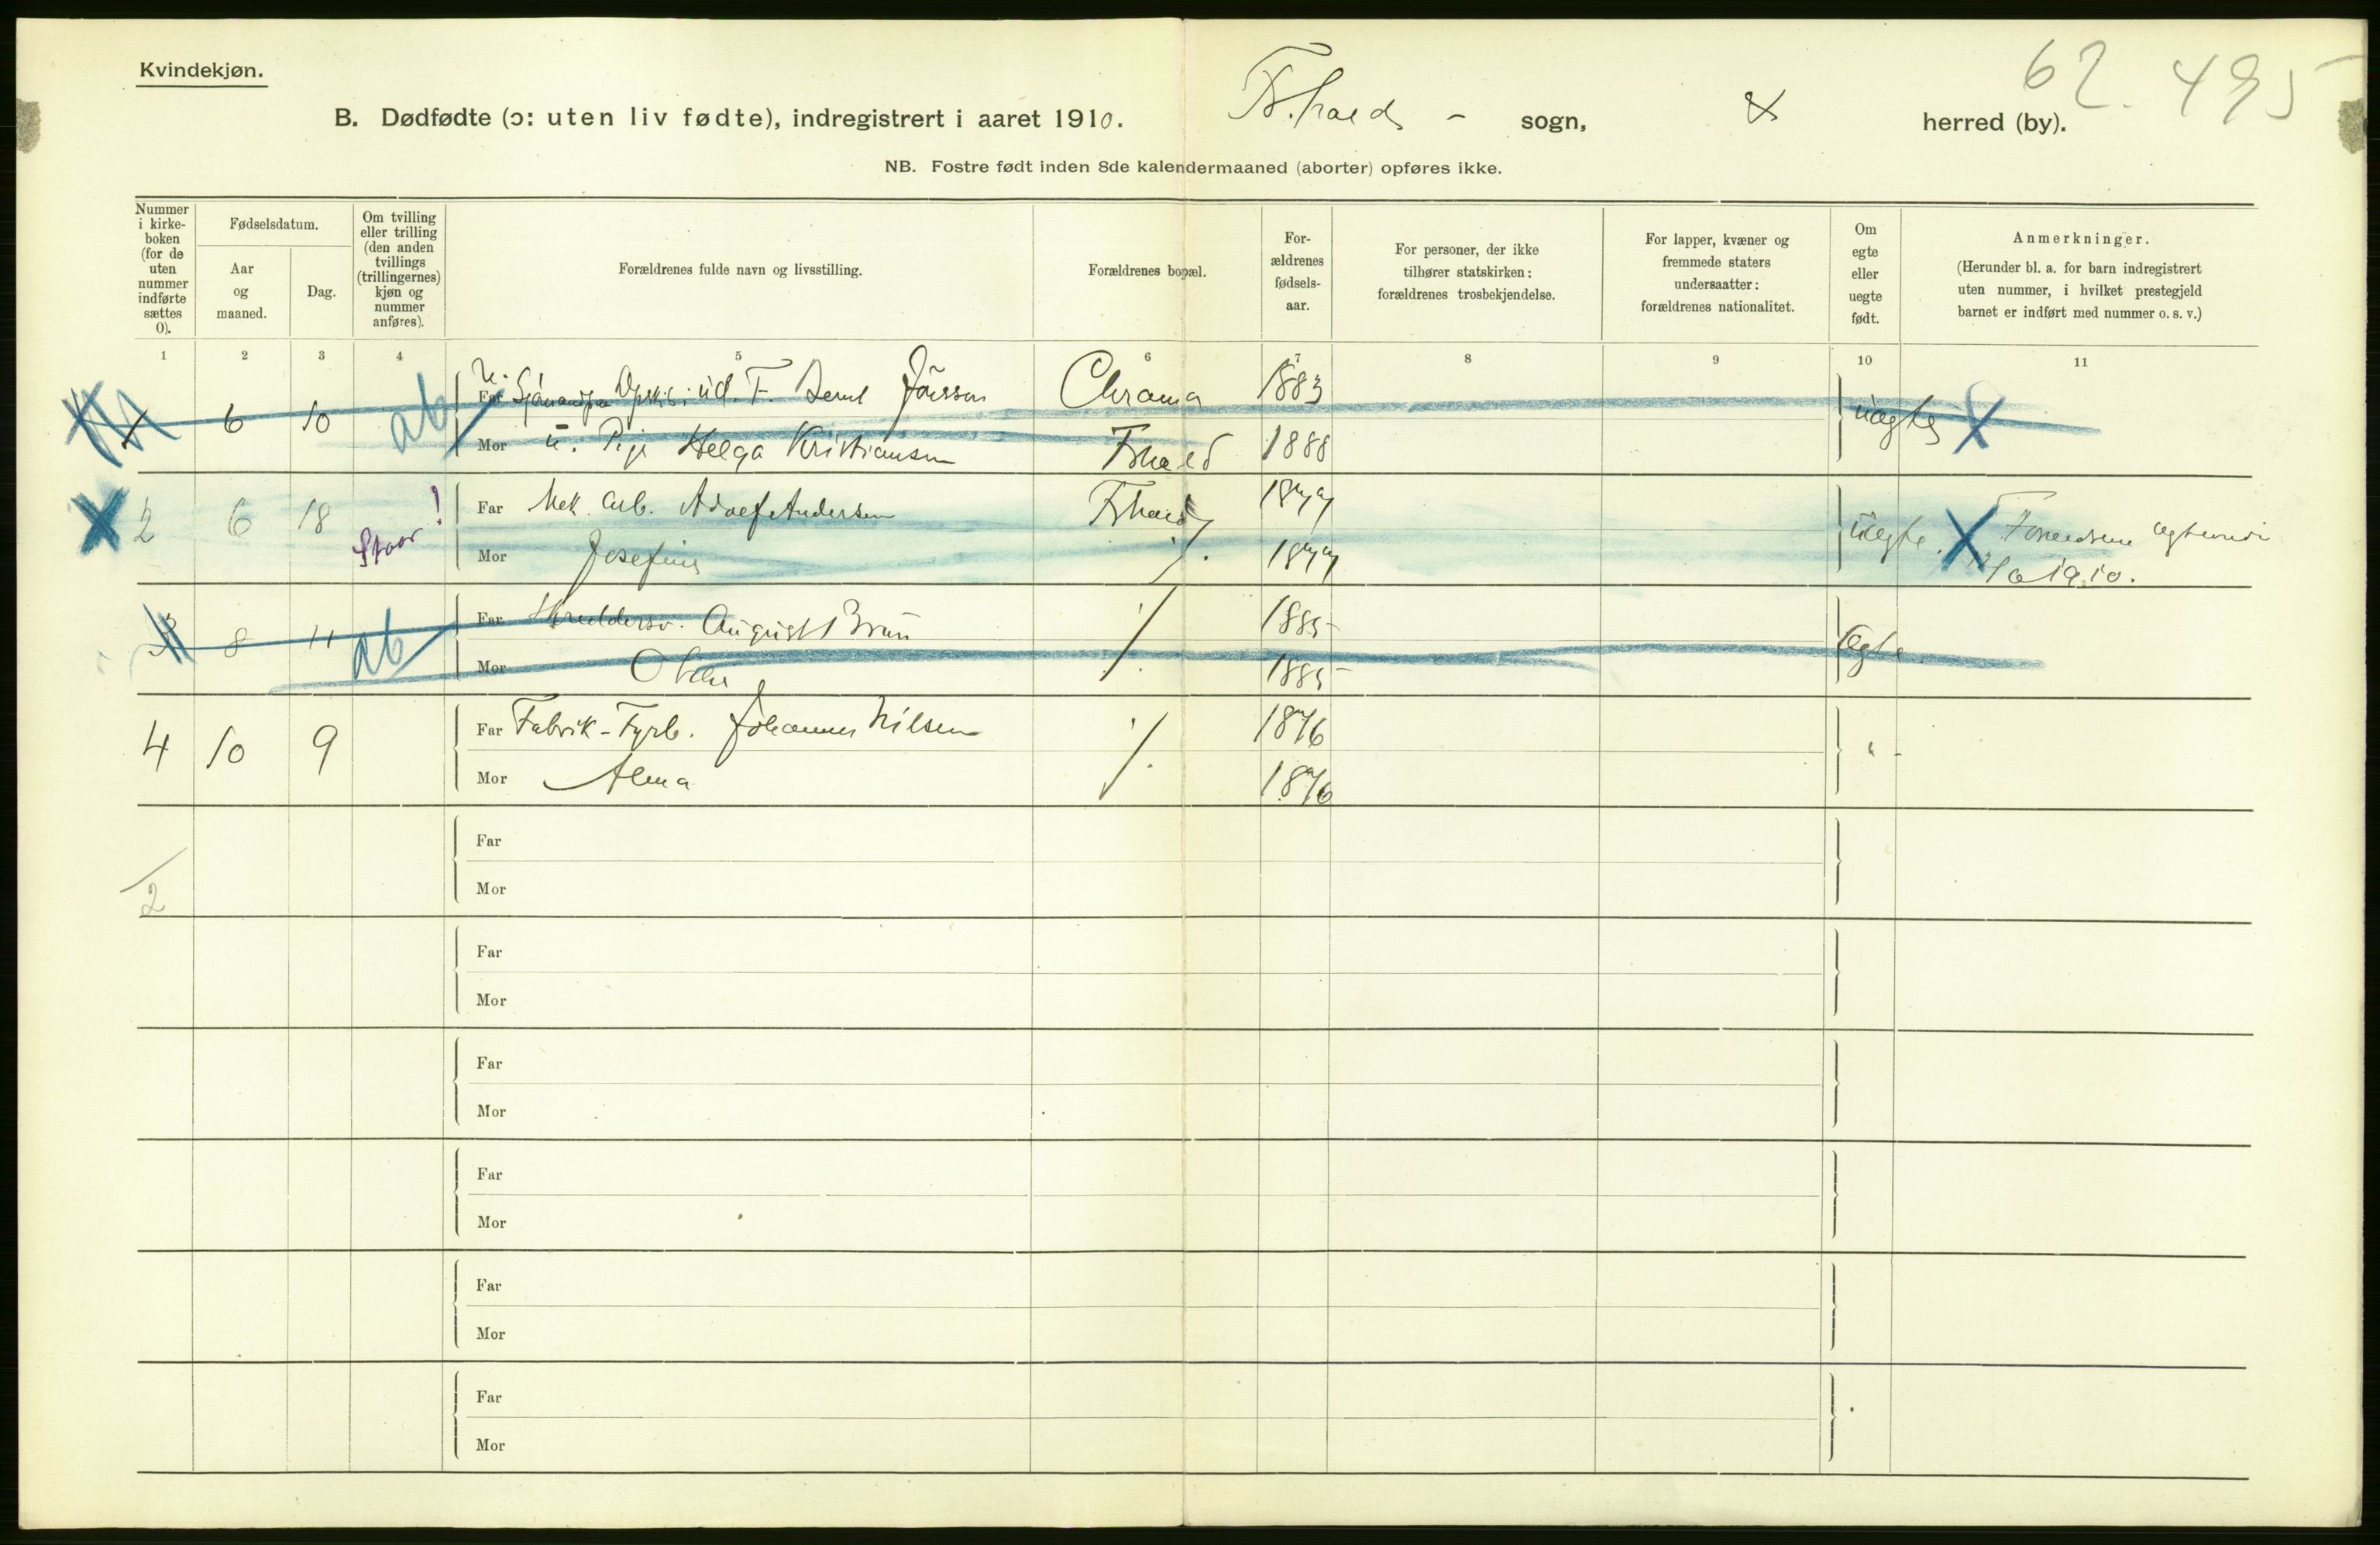 Kvindekjøn.
62. 495
B. Dødfødte (ɔ: uten liv fødte), indregistrert i aaret 1910. F.hald - sogn, herred (by).
NB. Fostre født inden 8de kalendermaaned (aborter) opføres ikke.
Nummer i kirke-boken (for de uten nummer indførte sættes 0).
Fødselsdatum.
Aar og maaned.
Dag.
Om tvilling eller trilling (den anden tvillings (trillingernes) kjøn og nummer anføres).
Forældrenes fulde navn og livsstilling.
Forældrenes bopæl.
For-ældrenes fødsels-aar.
For personer, der ikke tilhører statskirken: forældrenes trosbekjendelse.
For lapper, kvæner og fremmede staters undersaatter: forældrenes nationalitet.
Om egte eller uegte født.
Anmerkninger.
(Herunder bl. a. for barn indregistrert uten nummer, i hvilket prestegjeld barnet er indført med nummer o. s. v.)
1 2 3 4 5 6 7 8 9 10 11
6 10 ab Far U. F. Bernt Chrania 1883 uægte X
Mor u. Pige Helga Kristiansen Fhald 1888
X 2 6 18 Far Mek. arb. Adolf Andersen Fhald 1877 uægte. X
Mor Josefine ./. 1877 1910.
3 8 11 ab Far Skreddersv. August Brun ./. 1885 Ægte
Mor 1885
4 10 9 Far Fabrik-Fyrb. Johannes Nilsen ./. 1876 " -
Mor Alma 1876
Far
Mor
2
Far
Mor
Far
Mor
Far
Mor
Far
Mor
Far
Mor